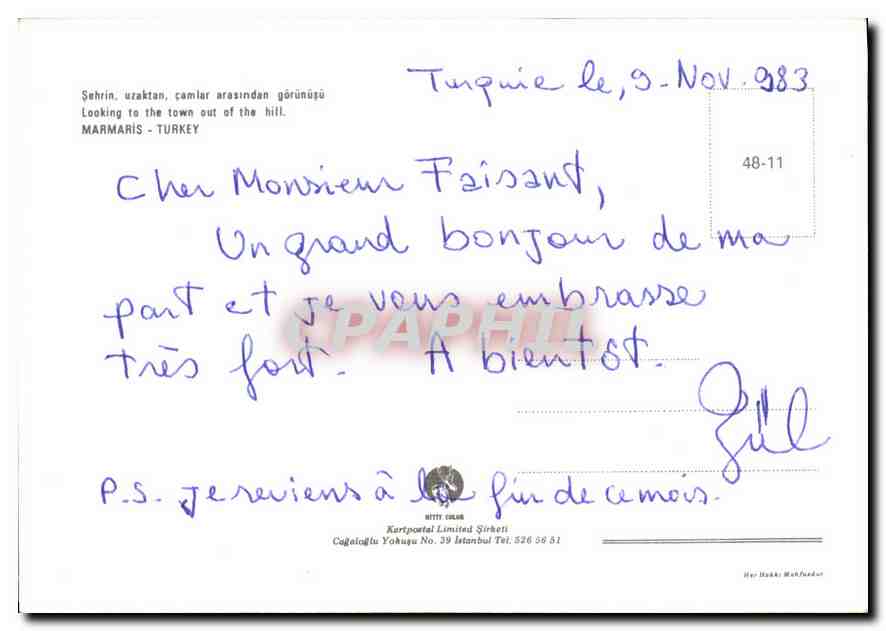 Turquie le, 9-Nov. 983
Şehrin, uzaktan, çamlar arasından görünüşü
Looking to the town out of the hill.
MARMARİS - TURKEY
48-11
Cher Monsieur Faisant,
Un grand bonjour de ma
part et je vous embrasse
très fort. A bientôt.
Gül
P.S. Je reviens à la fin de ce mois.
CPAPHIL
HITIT COLOR
Kartpostal Limited Şirketi
Cağaloğlu Yokuşu No. 39 İstanbul Tel. 526 56 51
Her Hakkı Mahfuzdur